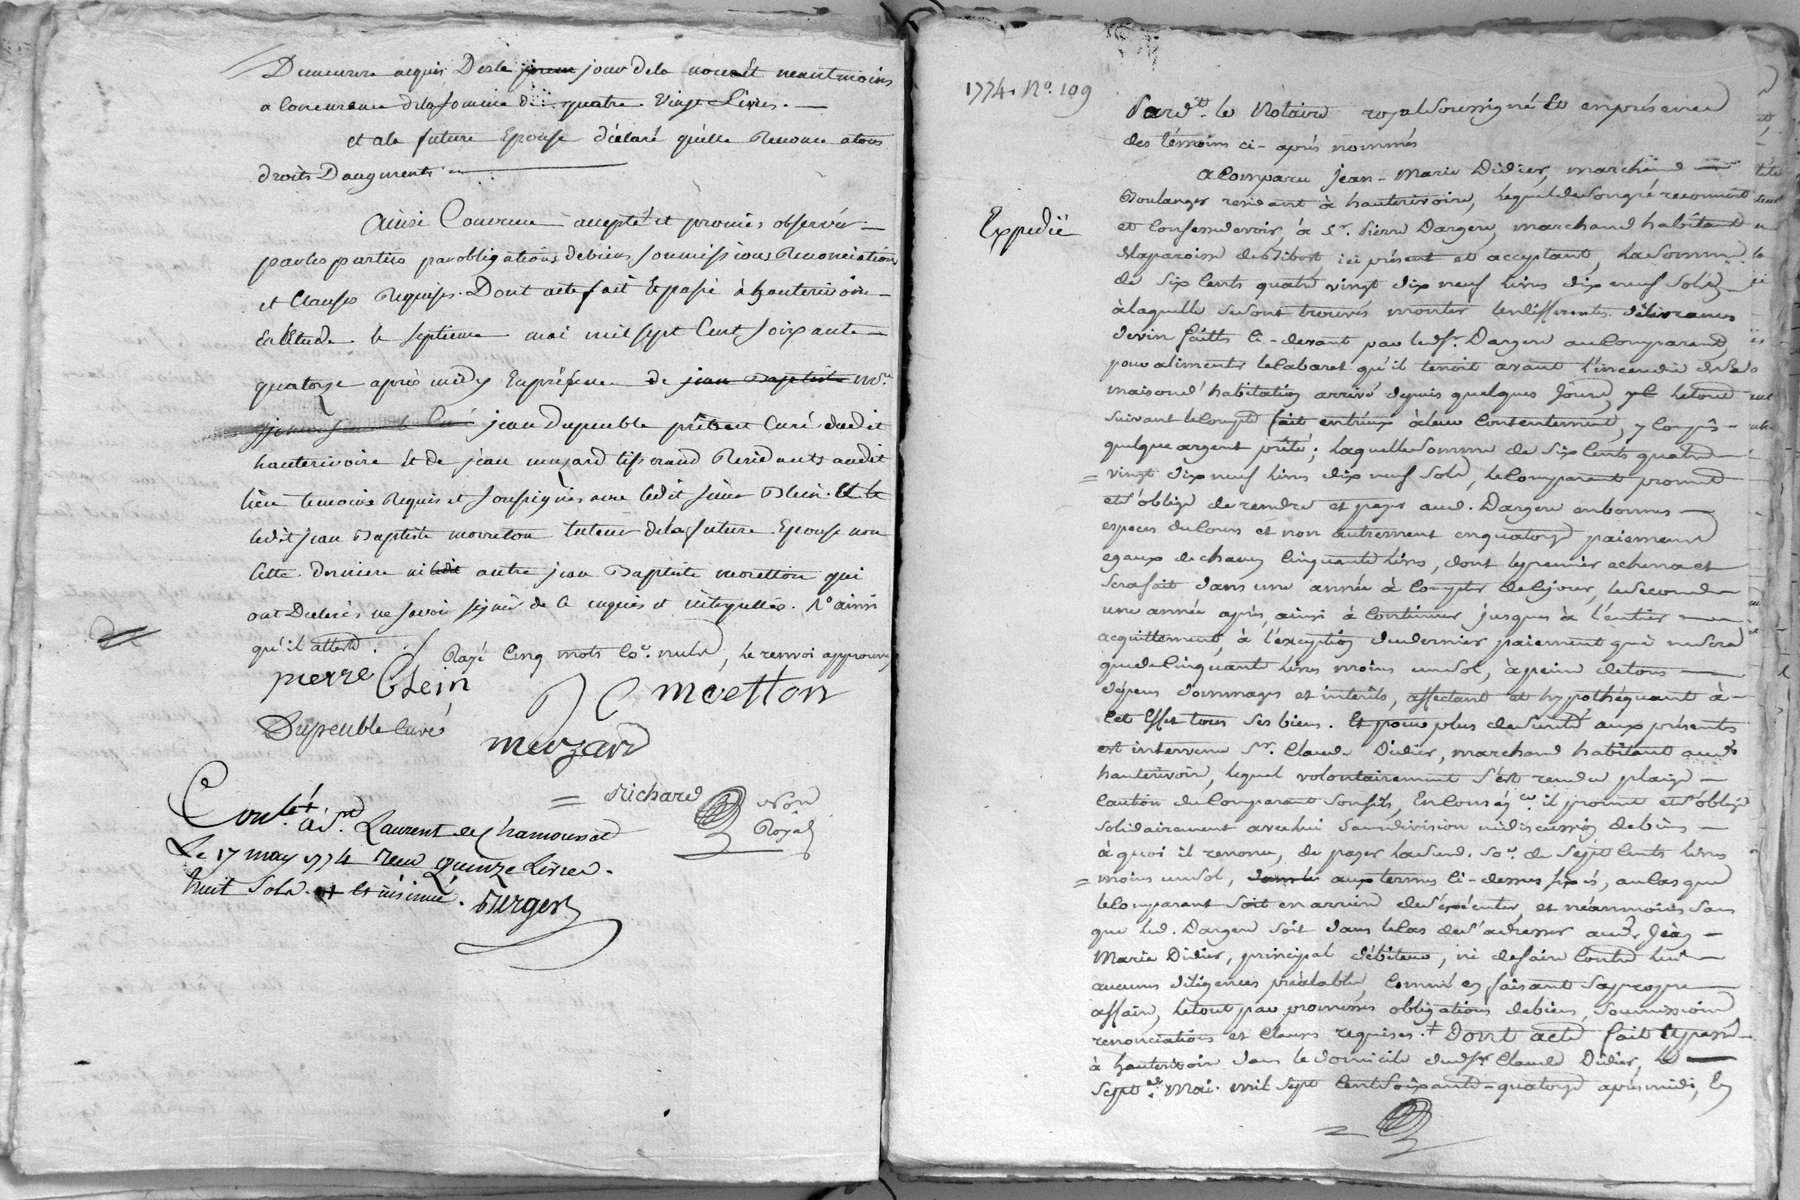 Demeurera acquis Des le jour jour de la noce et neantmoins
a Concurrence de la somme de quatre Vingt Livres. —
et a la future Epouse déclaré qu'elle Renonce a tous
droits Daugments
Ainsi Convenu accepté et promis observer —
par les parties par obligations de biens soumissions Renonciations
et Clauses Requises. Dont acte fait Et passé à hauterivoire —
En Etude le septieme mai mil sept Cent soixante —
quatorze après midy En présence de jean Baptiste
jean Dupeuble prêtre Curé dudit
hauterivoire Et de jean muzard tisserand Residants audit
lieu temoins Requis et soussignés avec ledit sieur Blein. Et le
ledit jean Baptiste moretton tuteur de la future Epouse non
Cette derniere ni ledit autre jean Baptiste moretton qui
ont Declaré ne savoir signer de ce enquis et interpellés. ainsi
qu'il atteste. Rayé Cinq mots Co.e nuls, le renvoi approuvé
pierre Blein
moetton
Dupeuble Curé
muzard
Richard
Non
Royal
Con.lé à S.t Laurent de Chamousset
Le 17 may 1774 Reçu quinze Livres
huit Sols. et insinué.
1774. N.o 109
Pard.t le Notaire royal soussigné Et en présence
des témoins ci-après nommés
a Comparu jean-Marie Didier, marchand
Boulanger residant à hauterivoire, lequel de son gré reconnoit
Expedié
et Confesse devoir à S.r Pierre Dargere, marchand habitant
la paroisse de ici présent et acceptant, la somme
de six Cents quatre vingt dix neuf livres dix neuf sols,
à laquelle se sont trouvés monter les differentes délivrances
de vin faites Ci-devant par led. S.r Dargere au Comparant,
pour alimenter le Cabaret qu'il tenoit avant l'incendie de sa
maison d'habitation arrivé depuis quelques jours, le tout
suivant le Compte fait entr'eux à leur Contentement, y Compris —
quelque argent prêté; laquelle somme de six Cents quatre
vingt dix neuf livres dix neuf sols, le Comparant promet
et s'oblige de rendre et payer aud. Dargere en bonnes —
especes du Cours et non autrement en quatorze paiements
egaux de chacun Cinquante livres, dont le premier echerra et
sera fait dans une année à Compter de Ce jour, le second
une année après, ainsi à Continuer jusques à l'entier —
acquittement, à l'exception du dernier paiement qui ne sera
que de Cinquante livres moins un sol, à peine de tous —
dépens dommages et interêts, affectant et hypothéquant à —
Cet Effet tous ses biens. Et pour plus de sureté aux présentes
est intervenu S.r Claude Didier, marchand habitant aud.t
hauterivoire, lequel volontairement s'est rendu pleige —
Caution du Comparant son fils, En Conséq.ce il promet et s'oblige
solidairement avec lui sans division ni discussion de biens —
à quoi il renonce, de payer lad. so.e de sept Cents livres
moins un sol, aux termes Ci-dessus fixés, au Cas que
le Comparant soit en arriere de s'exécuter, et néanmoins sans
que led. Dargere soit dans le Cas de s'adresser aud. jean —
Marie Didier, principal débiteur, ni de faire Contre lui
aucunes diligences préalables, Comme en faisant sa propre —
affaire, le tout par promesses obligations de biens, soumissions
renonciations et Clauses requises. + Dont acte fait Et passé —
à hauterivoire dans le domicile dud. S.r Claude Didier, le —
sept.e Mai mil sept Cent soixante-quatorze après midi, En